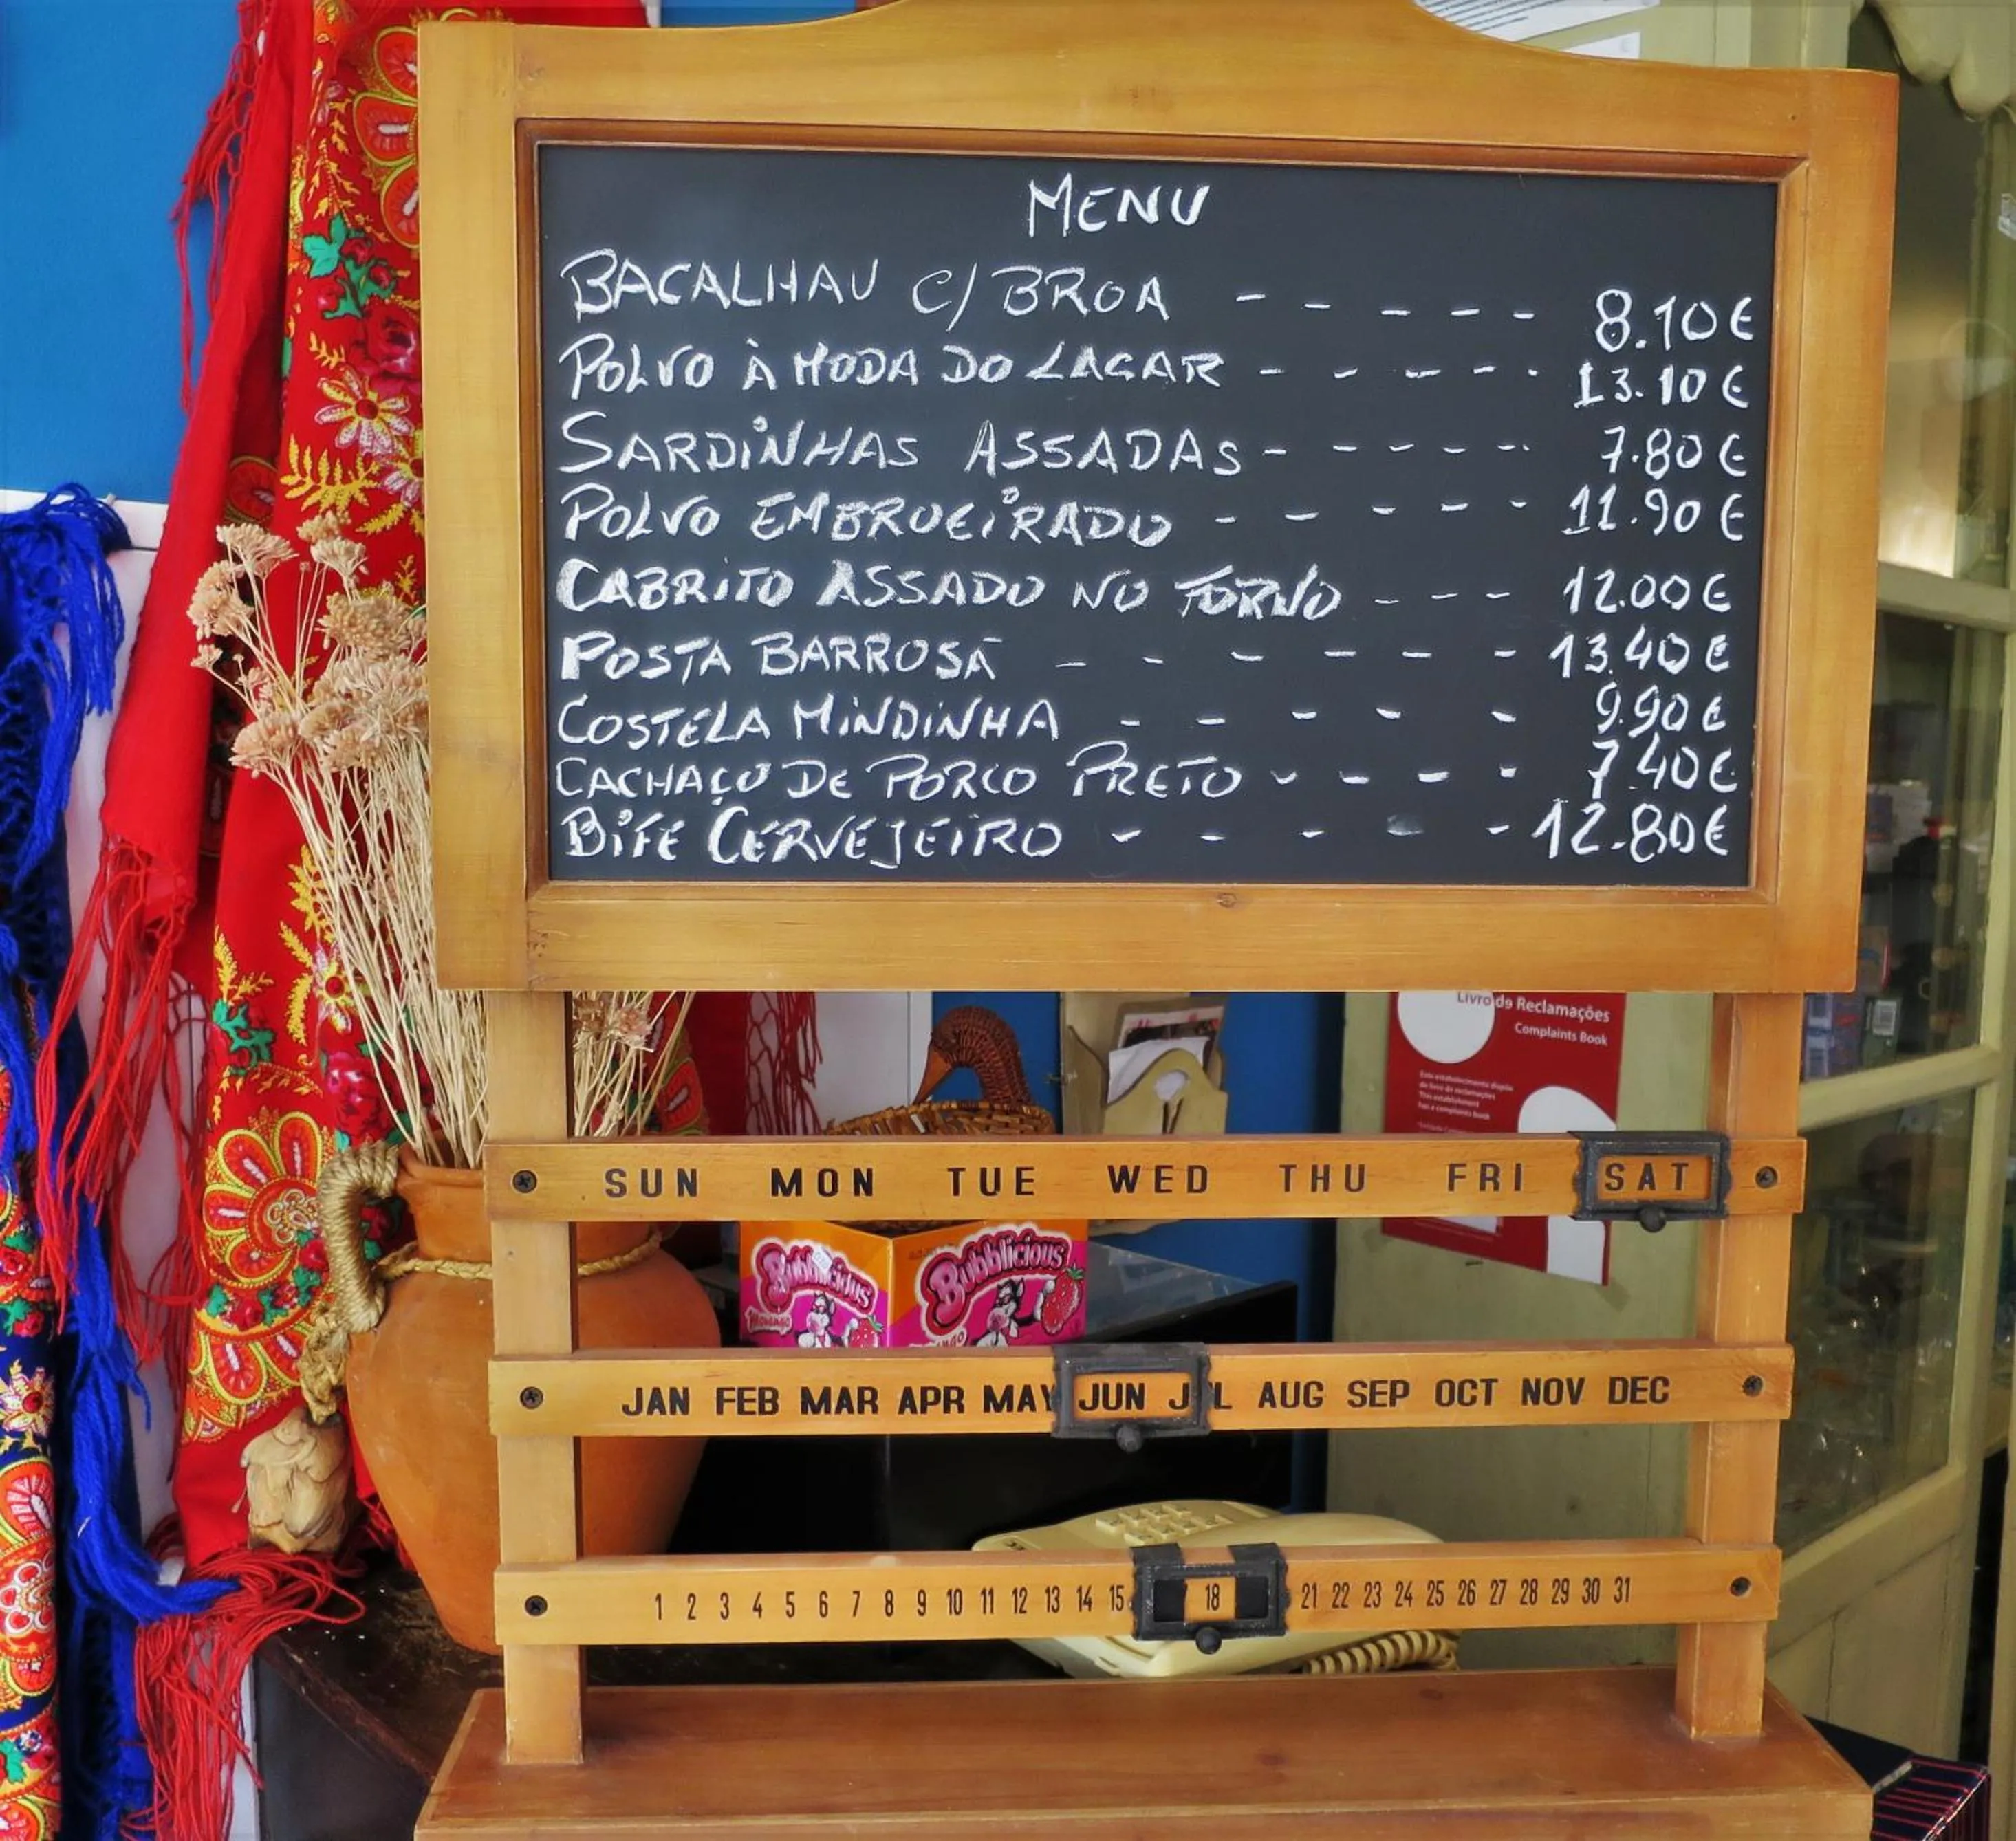 MENU
BACALHAU C/ BROA - - - - - 8.10€
POLVO À MODA DO LAGAR - - - - - 13.10€
SARDINHAS ASSADAS - - - - - 7.80€
POLVO EMBROEIRADO - - - - - 11.90€
CABRITO ASSADO NO FORNO - - - 12.00€
POSTA BARROSÃ - - - - - - 13.40€
COSTELA MINDINHA - - - - - 9.90€
CACHAÇO DE PORCO PRETO - - - - 7.40€
BIFE CERVEJEIRO - - - - - 12.80€
Livro de Reclamações
Complaints Book
Este estabelecimento dispõe
de livro de reclamações
This establishment
has a complaints book
SUN MON TUE WED THU FRI SAT
Bubblicious Bubblicious
Morango
JAN FEB MAR APR MAY JUN JUL AUG SEP OCT NOV DEC
1 2 3 4 5 6 7 8 9 10 11 12 13 14 15 18 21 22 23 24 25 26 27 28 29 30 31